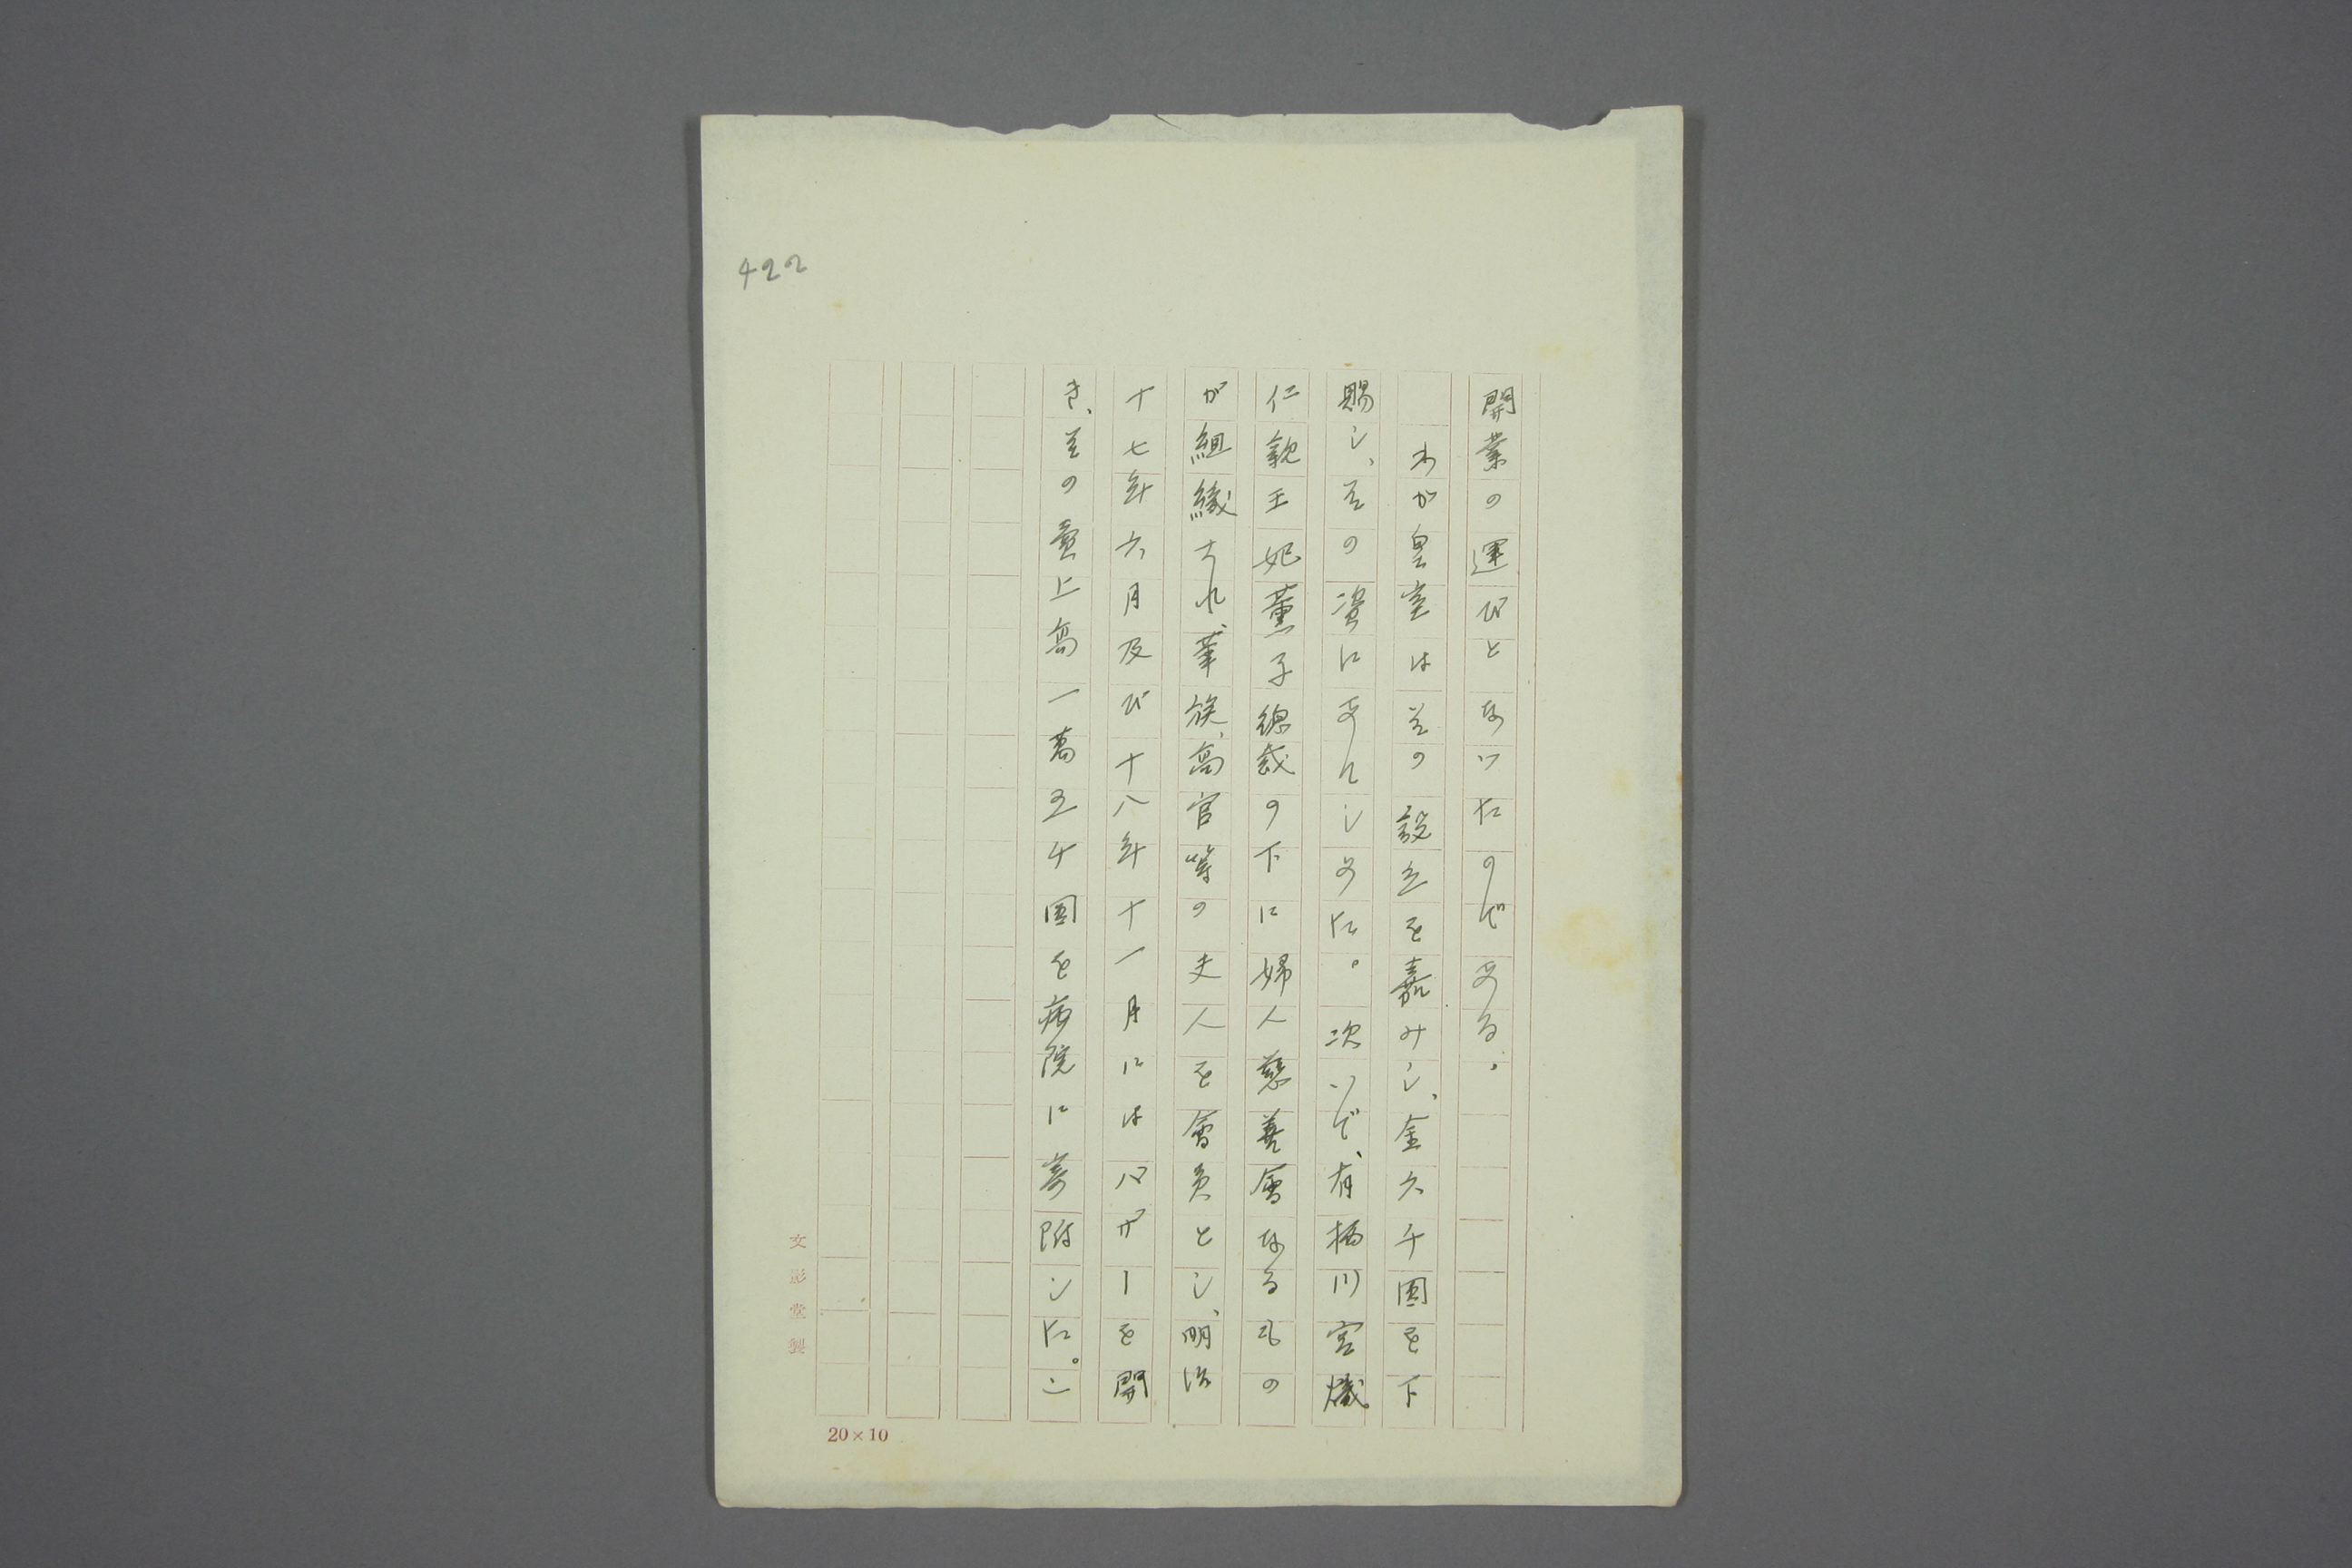 422
開業の運びとなつたのである。
わが皇室は其の設立を嘉みし、金六千圓を下
賜し、其の資にあてしめた。次いで、有栖川宮熾
仁親王妃董子總裁の下に婦人慈善會なるもの
が組織され、華族、高官等の夫人を會員とし、明治
十七年六月及び十八年十一月にはバザーを開
き、其の賣上高一萬五千圓を病院に寄附した。こ
文影堂製
20×10